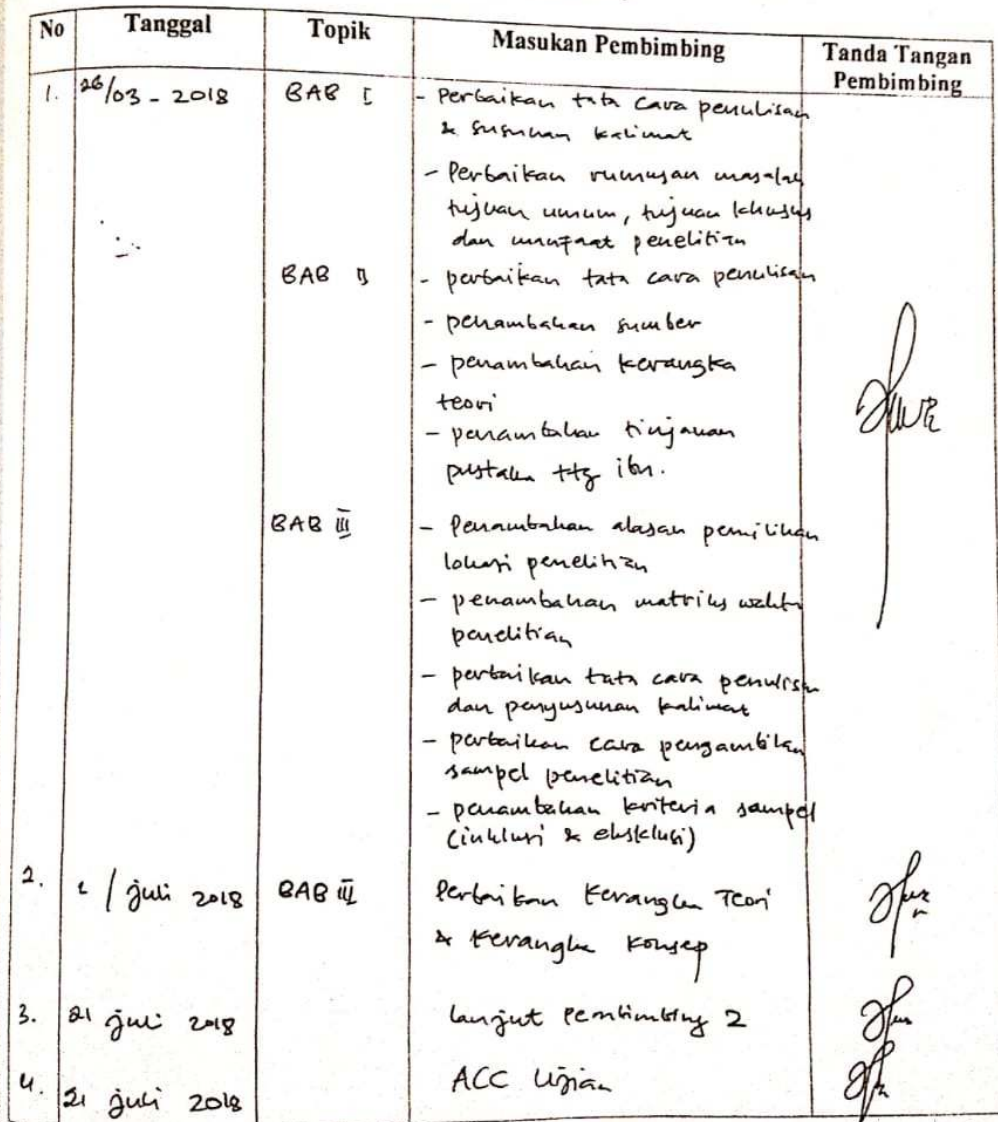 No Tanggal Topik Masukan Pembimbing Tanda Tangan Pembimbing
1. 26/03 - 2018 BAB I - Perbaikan tata cara penulisan
& susunan kalimat
- Perbaikan rumusan masalah
tujuan umum, tujuan khusus
dan manfaat penelitian
BAB II - perbaikan tata cara penulisan
- penambahan sumber
- penambahan kerangka
teori
- penambahan tinjauan
pustaka ttg ibu.
BAB III - Penambahan alasan pemilihan
lokasi penelitian
- penambahan matriks waktu
penelitian
- perbaikan tata cara penulisan
dan penyusunan kalimat
- perbaikan cara pengambilan
sampel penelitian
- penambahan kriteria sampel
(inklusi & eksklusi)
2. / juli 2018 BAB III Perbaikan Kerangka Teori
& Kerangka Konsep
3. 21 juli 2018 lanjut pembimbing 2
4. 21 juli 2018 ACC Ujian